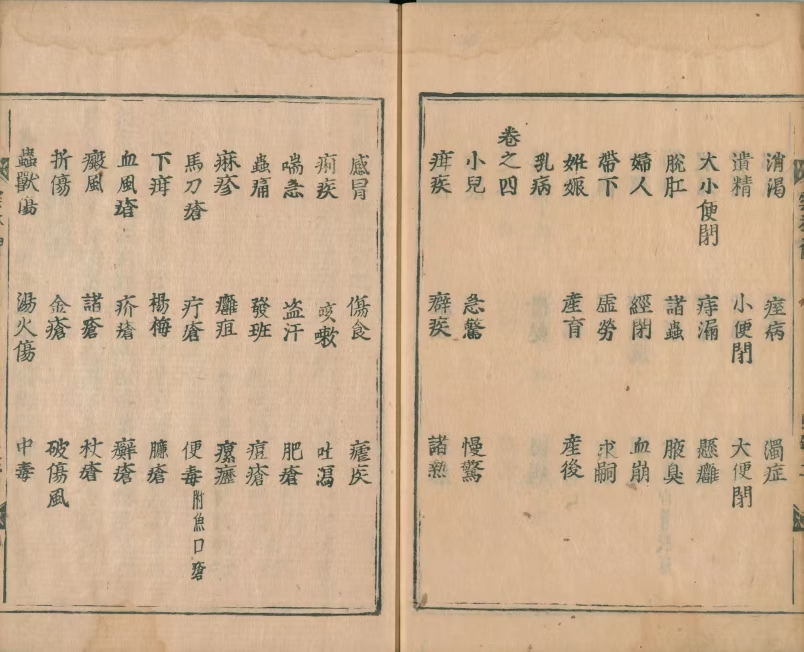 消渴 痓病 濁症
潰精
大小便閉 小便閉 大便閉
脫肛 痔漏 懸癰
婦人 諸蟲 腋臭
帶下 經閉 血崩
姙娠 虛勞 求嗣
乳病 產育 產後
卷之四
小兒 急驚 慢驚
疳疾 癖疾 諸熱
感冒 傷食 瘧疾
痢疾 咳嗽 吐瀉
喘急 盗汗 肥瘡
蟲痛 發班 痘瘡
痳疹 癰疽 瘰癧
馬刀瘡 疔瘡 便毒附魚口瘡
下疳 楊梅 臁瘡
血風瘡 疥瘡 癬瘡
癜風 諸瘡 杖瘡
折傷 金瘡 破傷風
蟲獸傷 湯火傷 中毒